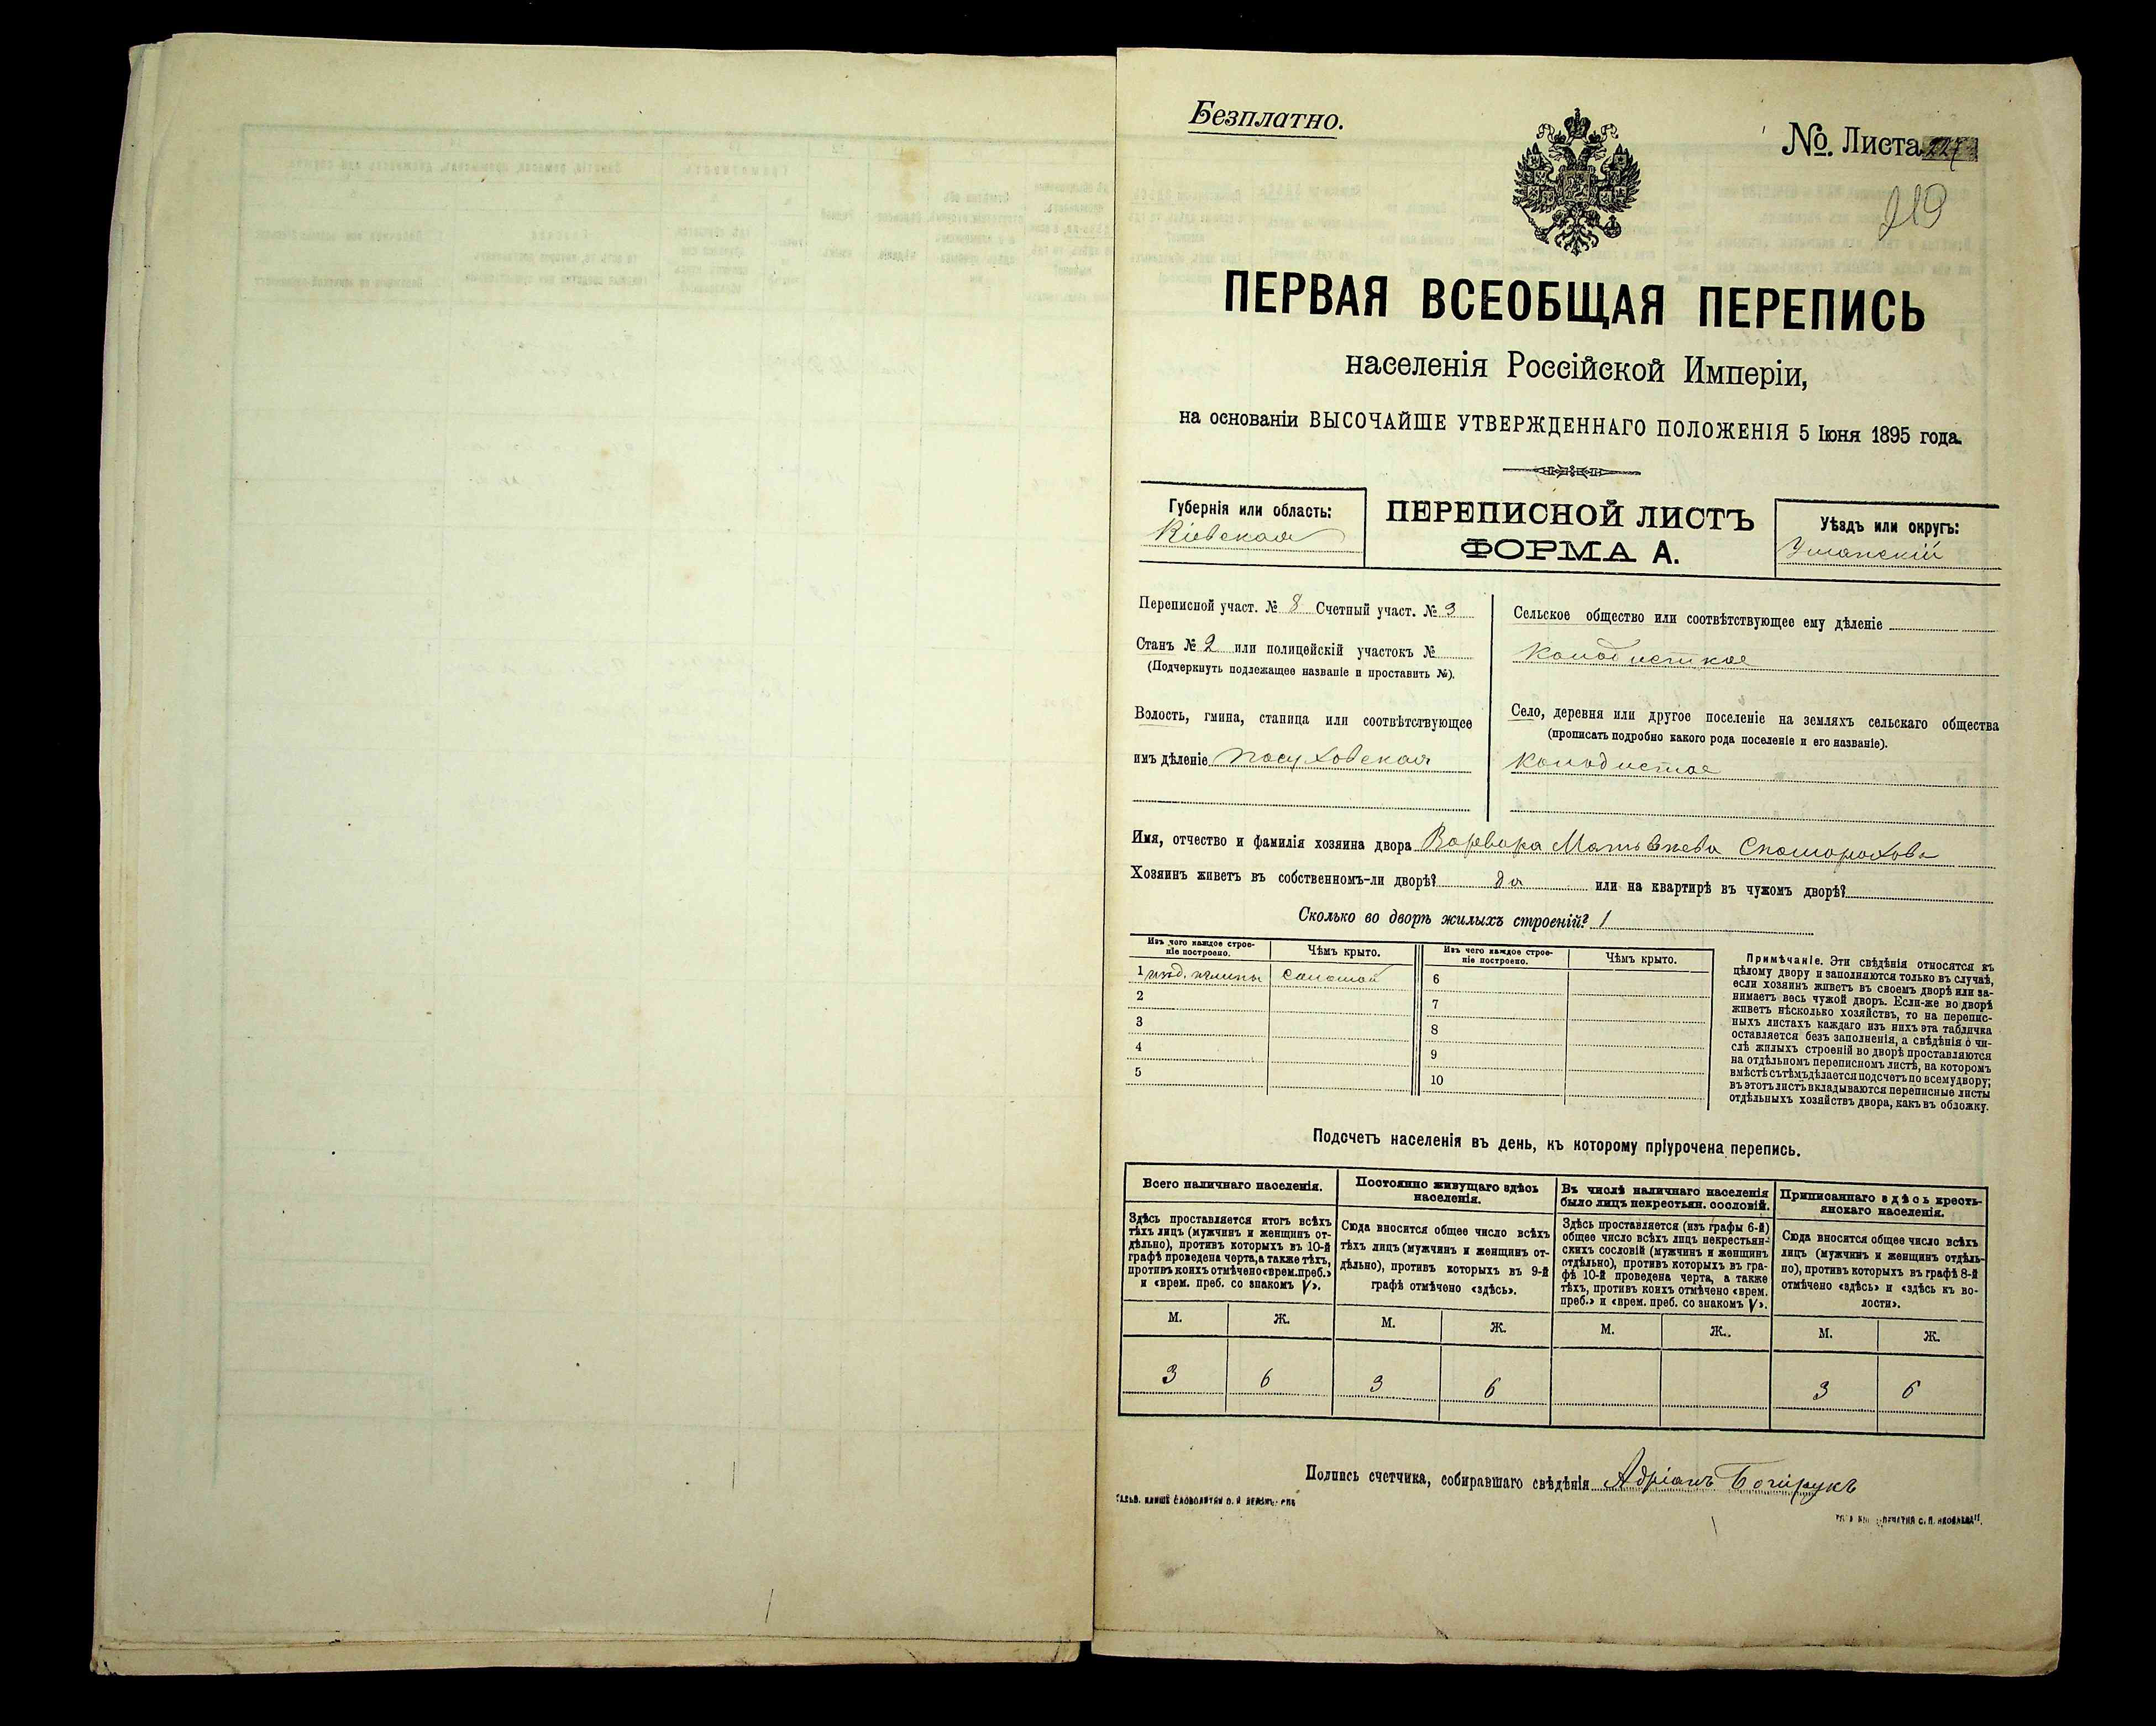 Безплатно.
№. Листа 227
219
ПЕРВАЯ ВСЕОБЩАЯ ПЕРЕПИСЬ
населенія Россійской Имперіи,
на основаніи ВЫСОЧАЙШЕ УТВЕРЖДЕННАГО ПОЛОЖЕНІЯ 5 Іюня 1895 года.
Губернія или область:
Кіевская
ПЕРЕПИСНОЙ ЛИСТЪ
ФОРМА А.
Уѣздъ или округъ:
Уманскій
Переписной участ. № 8 Счетный участ. № 3
Станъ № 2 или полицейскій участокъ №
(Подчеркнуть подлежащее названіе и проставить №).
Волость, гмина, станица или соотвѣтствующее
имъ дѣленіе Посуховская
Сельское общество или соотвѣтствующее ему дѣленіе
Колодисткое
Село, деревня или другое поселеніе на земляхъ сельскаго общества
(прописать подробно какого рода поселеніе и его названіе).
Колодистое
Имя, отчество и фамилія хозяина двора Варвара Матвѣева Скоморохова
Хозяинъ живетъ въ собственномъ-ли дворѣ? да или на квартирѣ въ чужомъ дворѣ?
Сколько во дворѣ жилыхъ строеній? 1
Изъ чего каждое строе-
ніе построено.
Чѣмъ крыто.
Изъ чего каждое строе-
ніе построено.
Чѣмъ крыто.
1 глины соломой 6
2 7
3 8
4 9
5 10
Примѣчаніе. Эти свѣдѣнія относятся къ
цѣлому двору и заполняются только въ случаѣ,
если хозяинъ живетъ въ своемъ дворѣ или за-
нимаетъ весь чужой дворъ. Если-же во дворѣ
живетъ нѣсколько хозяйствъ, то на перепис-
ныхъ листахъ каждаго изъ нихъ эта табличка
оставляется безъ заполненія, а свѣдѣнія о чи-
слѣ жилыхъ строеній во дворѣ проставляются
на отдѣльномъ переписномъ листѣ, на которомъ
вмѣстѣ съ тѣмъ дѣлается подсчетъ по всему двору;
въ этотъ листъ вкладываются переписные листы
отдѣльныхъ хозяйствъ двора, какъ въ обложку.
Подсчетъ населенія въ день, къ которому пріурочена перепись.
Всего наличнаго населенія.
Здѣсь проставляется итогъ всѣхъ
тѣхъ лицъ (мужчинъ и женщинъ от-
дѣльно), противъ которыхъ въ 10-й
графѣ проведена черта, а также тѣхъ,
противъ коихъ отмѣчено «врем. преб.»
и «врем. преб. со знакомъ V».
Постоянно живущаго здѣсь
населенія.
Сюда вносится общее число всѣхъ
тѣхъ лицъ (мужчинъ и женщинъ от-
дѣльно), противъ которыхъ въ 9-й
графѣ отмѣчено «здѣсь».
Въ числѣ наличнаго населенія
было лицъ некрестьян. сословій.
Здѣсь проставляется (изъ графы 6-й)
общее число всѣхъ лицъ некрестьян-
скихъ сословій (мужчинъ и женщинъ
отдѣльно), противъ которыхъ въ гра-
фѣ 10-й проведена черта, а также
тѣхъ, противъ коихъ отмѣчено «врем.
преб.» и «врем. преб. со знакомъ V».
Приписаннаго здѣсь кресть-
янскаго населенія.
Сюда вносится общее число всѣхъ
лицъ (мужчинъ и женщинъ отдѣль-
но), противъ которыхъ въ графѣ 8-й
отмѣчено «здѣсь» и «здѣсь къ во-
лости».
М. Ж. М. Ж. М. Ж. М. Ж.
3 6 3 6 3 6
Подпись счетчика, собиравшаго свѣдѣнія Адріанъ Богирукъ